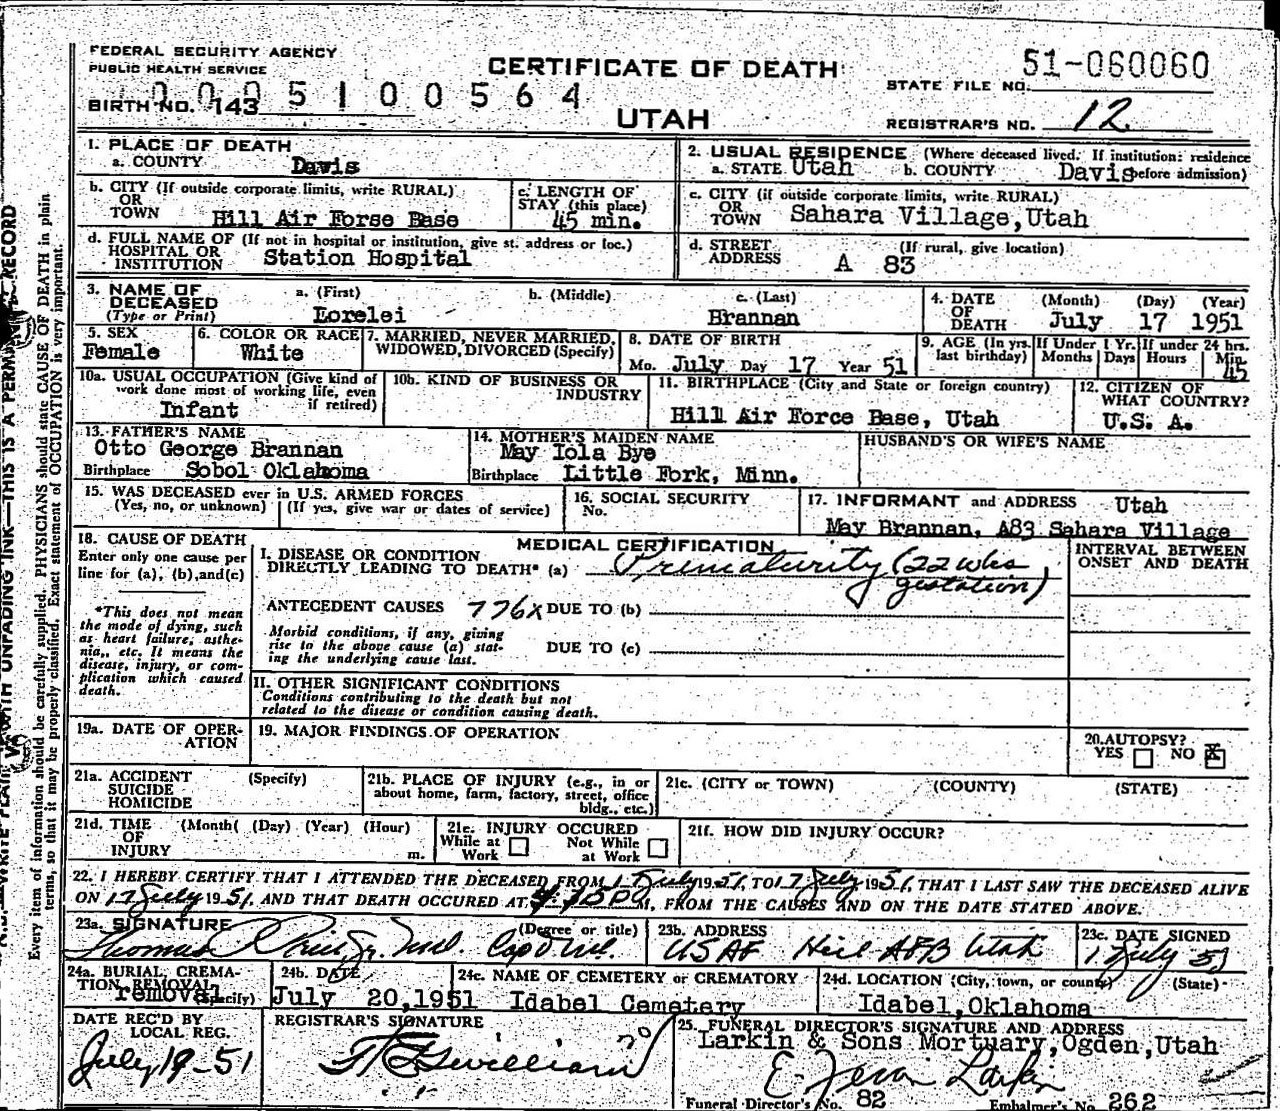 FEDERAL SECURITY AGENCY
PUBLIC HEALTH SERVICE
CERTIFICATE OF DEATH
UTAH
51-060060
STATE FILE NO.
0005100564
BIRTH NO. 143
REGISTRAR'S NO. 12
1. PLACE OF DEATH
a. COUNTY Davis
2. USUAL RESIDENCE (Where deceased lived. If institution: residence before admission)
a. STATE Utah b. COUNTY Davis
b. CITY (If outside corporate limits, write RURAL)
OR
TOWN Hill Air Forse Base
c. LENGTH OF
STAY (this place)
45 min.
c. CITY (if outside corporate limits, write RURAL)
OR
TOWN Sahara Village,Utah
d. FULL NAME OF (If not in hospital or institution, give st. address or loc.)
HOSPITAL OR
INSTITUTION Station Hospital
d. STREET (If rural, give location)
ADDRESS A 83
3. NAME OF
DECEASED
(Type or Print)
a. (First) b. (Middle) c. (Last)
Lorelei Brannan
4. DATE
OF
DEATH
(Month) (Day) (Year)
July 17 1951
5. SEX
Female
6. COLOR OR RACE
White
7. MARRIED, NEVER MARRIED,
WIDOWED, DIVORCED (Specify)
8. DATE OF BIRTH
Mo. July Day 17 Year 51
9. AGE (In yrs. last birthday)
If Under 1 Yr. Months Days
If under 24 hrs. Hours Min.
45
10a. USUAL OCCUPATION (Give kind of
work done most of working life, even
if retired)
Infant
10b. KIND OF BUSINESS OR
INDUSTRY
11. BIRTHPLACE (City and State or foreign country)
Hill Air Force Base, Utah
12. CITIZEN OF
WHAT COUNTRY?
U.S. A.
13. FATHER'S NAME
Otto George Brannan
Birthplace Sobol Oklahoma
14. MOTHER'S MAIDEN NAME
May Iola Bye
Birthplace Little Fork, Minn.
HUSBAND'S OR WIFE'S NAME
15. WAS DECEASED ever in U.S. ARMED FORCES
(Yes, no, or unknown) (If yes, give war or dates of service)
16. SOCIAL SECURITY
No.
17. INFORMANT and ADDRESS Utah
May Brannan, A83 Sahara Village
18. CAUSE OF DEATH
Enter only one cause per
line for (a), (b), and (c)
*This does not mean
the mode of dying, such
as heart failure, asthe-
nia, etc. It means the
disease, injury, or com-
plication which caused
death.
MEDICAL CERTIFICATION
I. DISEASE OR CONDITION
DIRECTLY LEADING TO DEATH* (a) Prematurity (22 wks
gestation)
ANTECEDENT CAUSES 776x DUE TO (b)
Morbid conditions, if any, giving
rise to the above cause (a) stat-
ing the underlying cause last.
DUE TO (c)
II. OTHER SIGNIFICANT CONDITIONS
Conditions contributing to the death but not
related to the disease or condition causing death.
INTERVAL BETWEEN
ONSET AND DEATH
19a. DATE OF OPER-
ATION
19. MAJOR FINDINGS OF OPERATION
20. AUTOPSY?
YES NO X
21a. ACCIDENT (Specify)
SUICIDE
HOMICIDE
21b. PLACE OF INJURY (e.g., in or
about home, farm, factory, street, office
bldg., etc.)
21c. (CITY or TOWN) (COUNTY) (STATE)
21d. TIME (Month( (Day) (Year) (Hour)
OF
INJURY m.
21e. INJURY OCCURED
While at Work Not While at Work
21f. HOW DID INJURY OCCUR?
22. I HEREBY CERTIFY THAT I ATTENDED THE DECEASED FROM 17 July 1951, TO 17 July 1951, THAT I LAST SAW THE DECEASED ALIVE
ON 17 July 1951, AND THAT DEATH OCCURED AT M, FROM THE CAUSES AND ON THE DATE STATED ABOVE.
23a. SIGNATURE (Degree or title)
Thomas
23b. ADDRESS
USAF Hill AFB Utah
23c. DATE SIGNED
July 51
24a. BURIAL, CREMA-
TION, REMOVAL (Specify)
removal
24b. DATE
July 20,1951
24c. NAME OF CEMETERY or CREMATORY
Idabel Cemetery
24d. LOCATION (City, town, or county) (State)
Idabel,Oklahoma
DATE REC'D BY
LOCAL REG.
July 19-51
REGISTRAR'S SIGNATURE
25. FUNERAL DIRECTOR'S SIGNATURE AND ADDRESS
Larkin & Sons Mortuary,Ogden,Utah
Larkin
Funeral Director's No. 82 Embalmer's No. 262
Every item of information should be carefully supplied. PHYSICIANS should state CAUSE OF DEATH in plain
terms, so that it may be properly classified. Exact statement of OCCUPATION is very important.
WITH UNFADING INK—THIS IS A PERMANENT RECORD